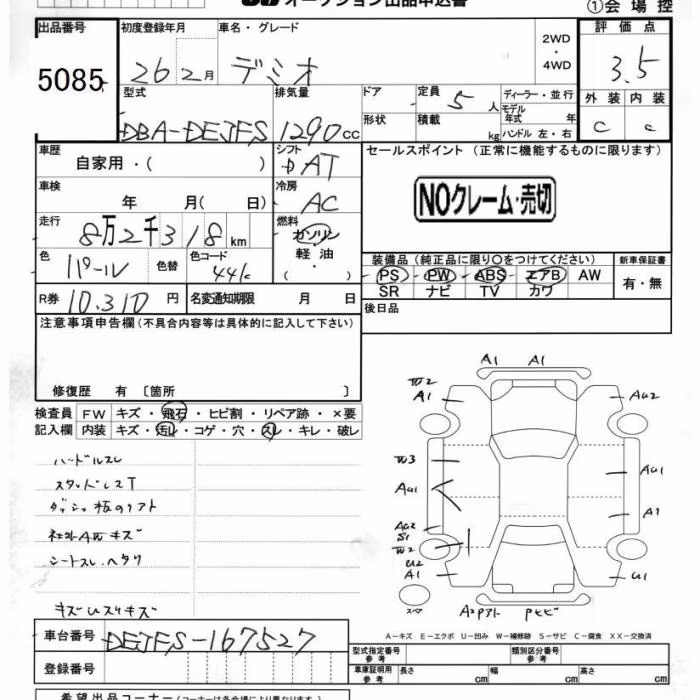 オークション出品申込書
①会場控
出品番号 初度登録年月 車名・グレード 評価点
5085 26 2月 デミオ 2WD・4WD 3.5
型式 排気量 ドア 定員 5人 ディーラー・並行 外装 内装
DBA-DEJFS 1290cc 形状 積載 kg モデル年式 年 ハンドル 左・右 C C
車歴 自家用・( ) シフト AT セールスポイント (正常に機能するものに限ります)
車検 年 月( 日) 冷房 AC
NOクレーム・売切
走行 8万2千318km 燃料 ガソリン 軽油・( ・ )
色 パール 色替 色コード 44K
装備品 (純正品に限り○をつけてください) 新車保証書
PS PW ABS エアB AW 有・無
SR ナビ TV カワ
R券 10,310円 名変通知期限 月 日 後日品
注意事項申告欄 (不具合内容等は具体的に記入して下さい)
修復歴 有 〔箇所 〕
検査員記入欄 FW キズ・飛石・ヒビ割・リペア跡・×要
内装 キズ・汚レ・コゲ・穴・スレ・キレ・破レ
ハンドルスレ
スタッドレスT
社外AWキズ
シートスレ、ヘタリ
A1 A1
W2
A1
AU2
W3
AU1
AU1
A1
AU2
S1
W2
U2
A1
U1
スペア
A-キズ E-エクボ U-凹み W-補修跡 S-サビ C-腐食 XX-交換済
車台番号 DEJFS-167527
登録番号
型式指定番号 参考 類別区分番号 参考
車庫証明用 参考 長さ cm 幅 cm 高さ cm
希望出品コーナー